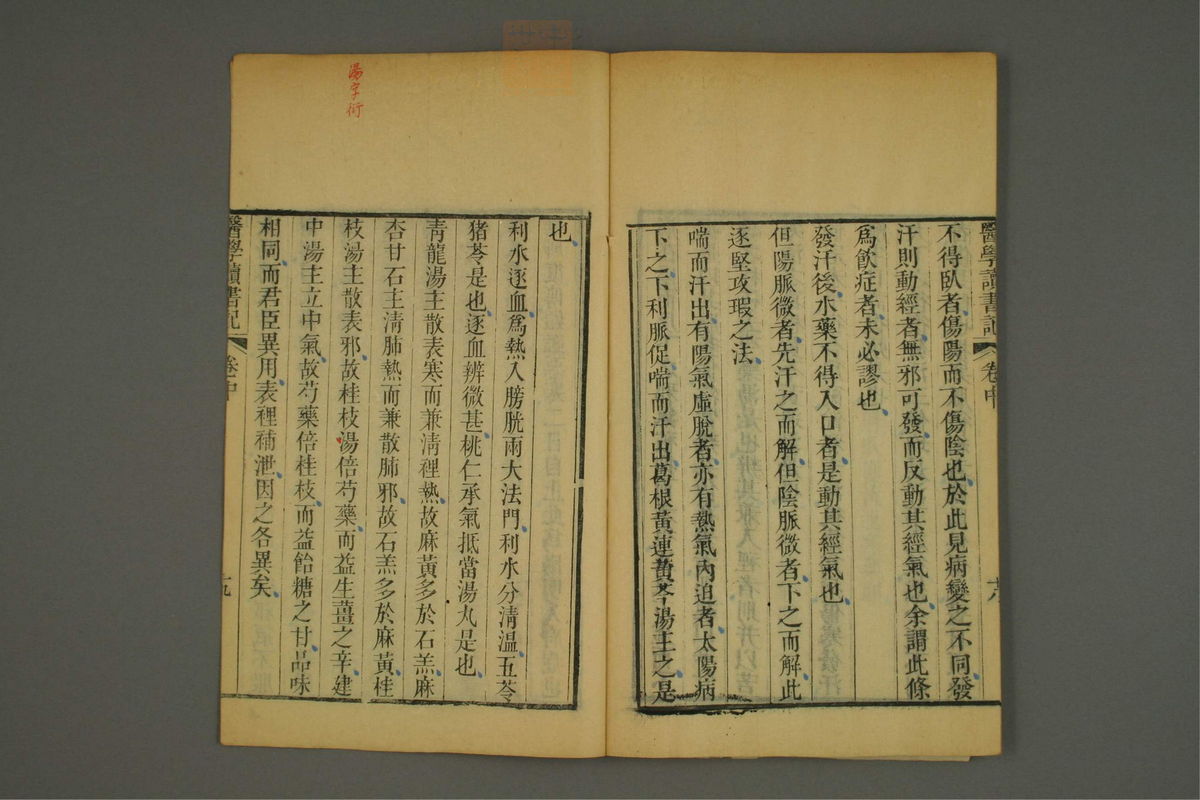 醫學讀書記
卷中
十八
不得臥者傷陽而不傷陰也於此見病變之不同發
汗則動經者無邪可發而反動其經氣也余謂此條
爲飲症者未必謬也
發汗後水藥不得入口者是動其經氣也
但陽脈微者先汗之而解但陰脈微者下之而解此
逐堅攻瑕之法
喘而汗出有陽氣虛脫者亦有熱氣內迫者太陽病
下之下利脈促喘而汗出葛根黃連黃芩湯主之是
也
利水逐血爲熱入膀胱兩大法門利水分清溫五苓
猪苓是也逐血辨微甚桃仁承氣抵當湯丸是也
青龍湯主散表寒而兼清裡熱故麻黃多於石羔麻
杏甘石主清肺熱而兼散肺邪故石羔多於麻黃桂
枝湯主散表邪故桂枝湯倍芍藥而益生薑之辛建
中湯主立中氣故芍藥倍桂枝而益飴糖之甘品味
相同而君臣異用表裡補泄因之各異矣
醫學讀書記
卷中
十九
湯字衍